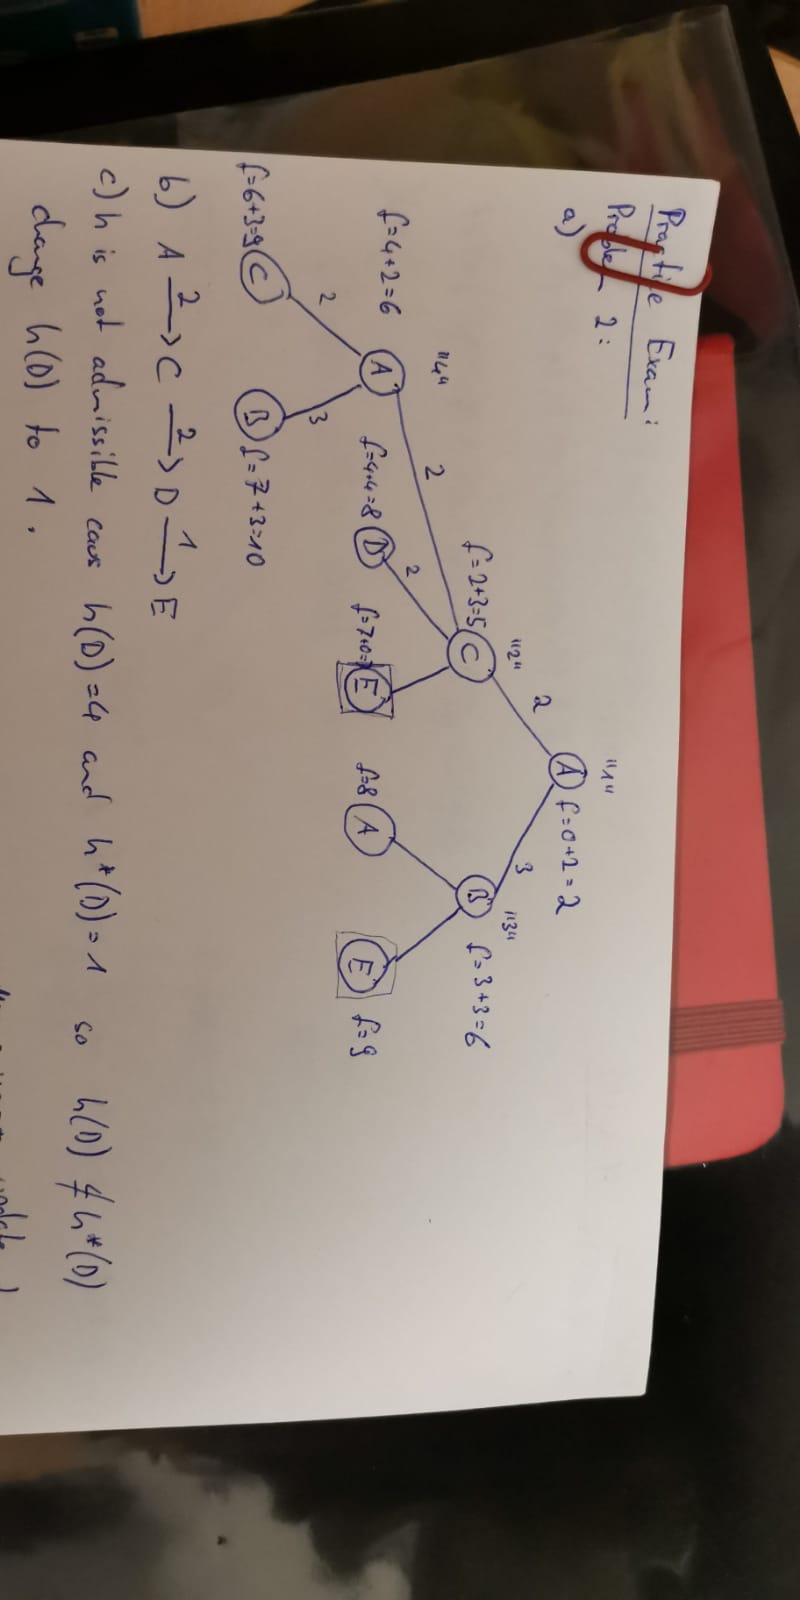 Practice Exam:
Problem 2:
a)
"1"
A f=0+2=2
2
3
f=2+3=5
"2"
C
B
"3"
f=3+3=6
"4"
f=4+2=6
A
2
f=4+4=8 D
2
f=7+0=7
E
f=8 A
E f=9
2
3
f=6+3=9 C
B f=7+3=10
b) A 2→ C 2→ D 1→ E
c) h is not admissible caus h(D)=4 and h*(D)=1 so h(D) ≰ h*(D)
change h(D) to 1.